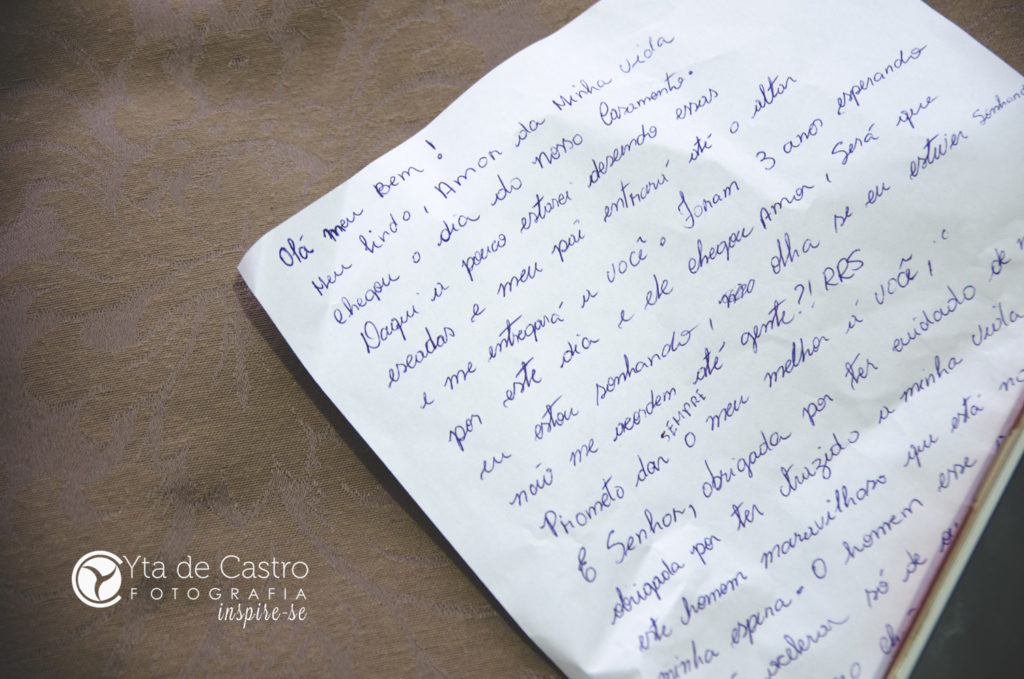 Olá meu Bem!
Meu lindo, Amor da Minha vida
chegou o dia do nosso Casamento.
Daqui a pouco estarei descendo essas
escadas e meu pai entrará até o altar
e me entregará a você. Foram 3 anos esperando
por este dia e ele chegou Amor, Será que
eu estou sonhando, olha se eu estiver sonhando
não me acordem até gente?! RRS
SEMPRE
Prometo dar o meu melhor à você!
E Senhor, obrigada por ter cuidado de
obrigada por ter trazido a minha vida
este homem maravilhoso que está
minha espera. O homem esse
acelerar só de
Yta de Castro
FOTOGRAFIA
inspire-se